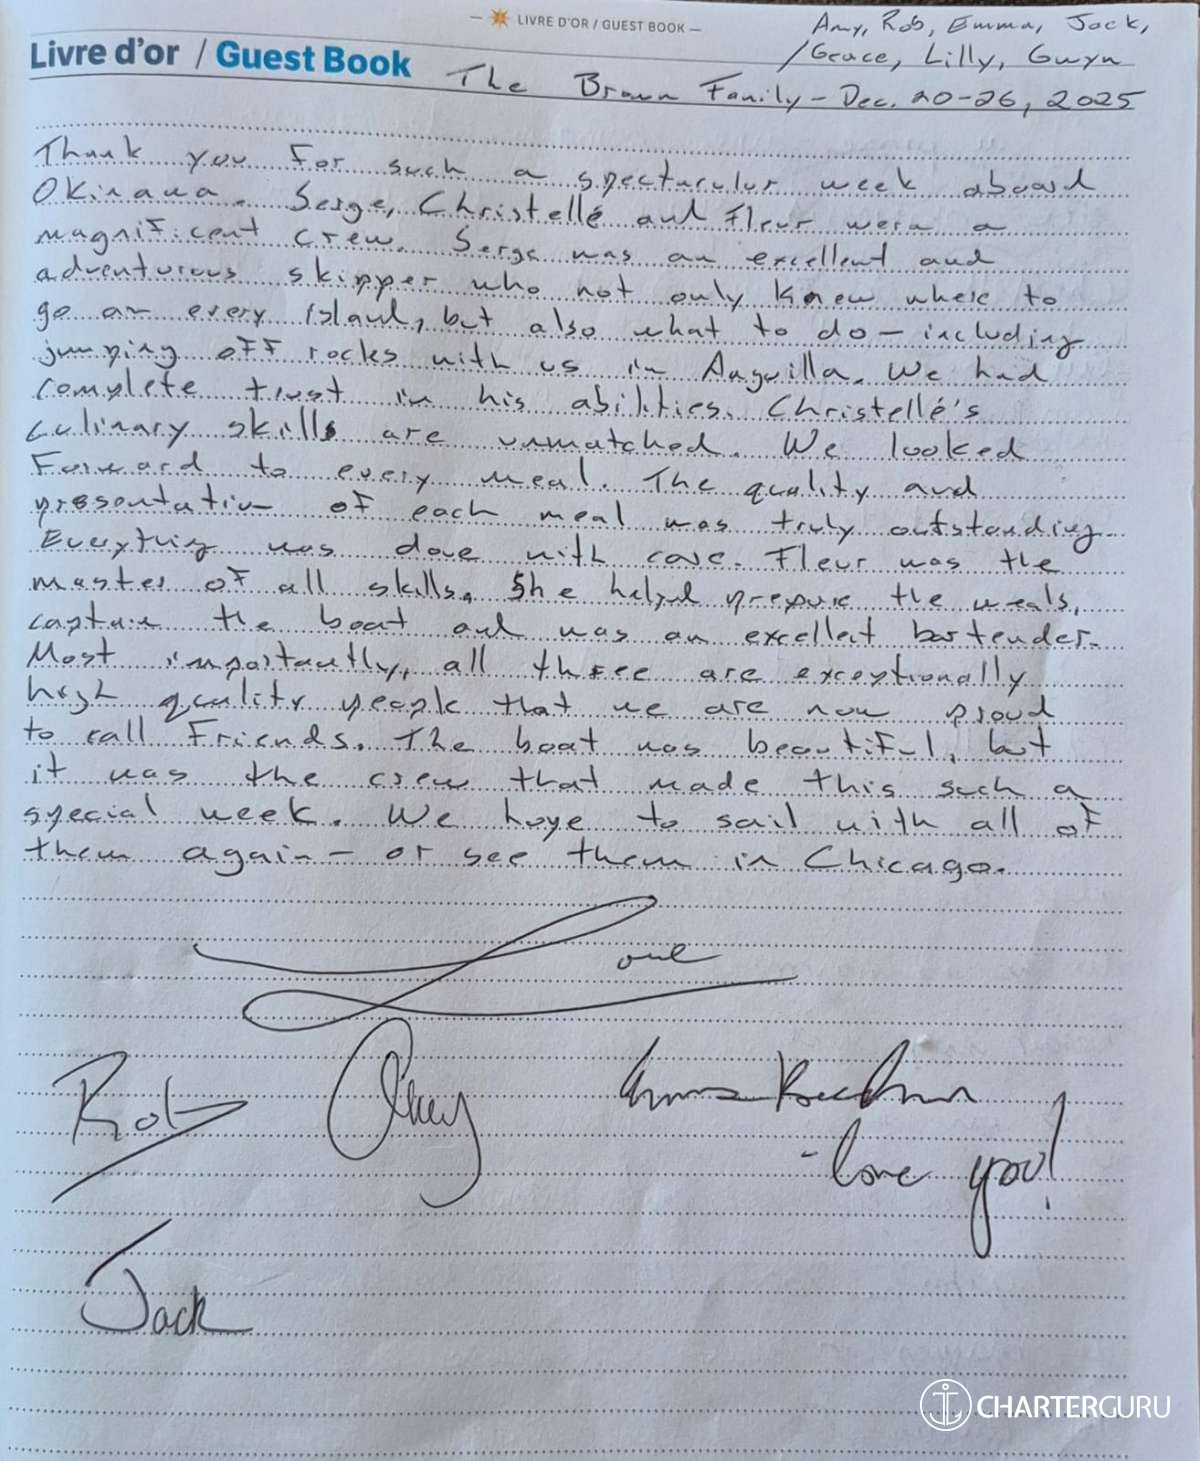 — LIVRE D'OR / GUEST BOOK —
Amy, Rob, Emma, Jack,
/Grace, Lilly, Gwyn
Livre d'or / Guest Book
The Brown Family - Dec. 20-26, 2025
Thank you for such a spectacular week aboard
Okinawa. Serge, Christellé and Fleur were a
magnificent crew. Serge was an excellent and
adventurous skipper who not only knew where to
go on every island, but also what to do - including
jumping off rocks with us in Anguilla. We had
complete trust in his abilities. Christellé's
culinary skills are unmatched. We looked
forward to every meal. The quality and
presentation of each meal was truly outstanding.
Everything was done with care. Fleur was the
master of all skills. She helped prepare the meals,
captain the boat and was an excellent bartender.
Most importantly, all three are exceptionally
high quality people that we are now proud
to call friends. The boat was beautiful, but
it was the crew that made this such a
special week. We hope to sail with all of
them again - or see them in Chicago.
Love
Rob Amy Emma
- love you!
Jack
CHARTERGURU